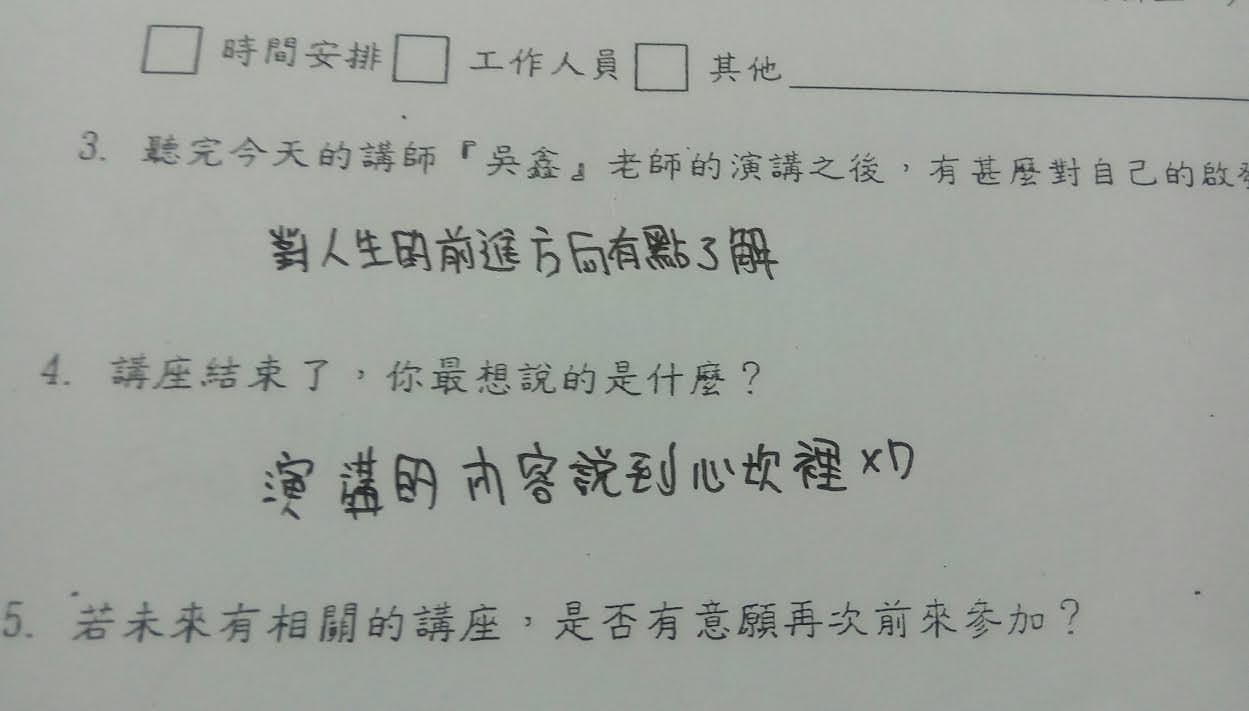 □ 時間安排 □ 工作人員 □ 其他
3. 聽完今天的講師『吳鑫』老師的演講之後，有甚麼對自己的啟
對人生的前進方向有點了解
4. 講座結束了，你最想說的是什麼？
演講的內容說到心坎裡 xD
5. 若未來有相關的講座，是否有意願再次前來參加？